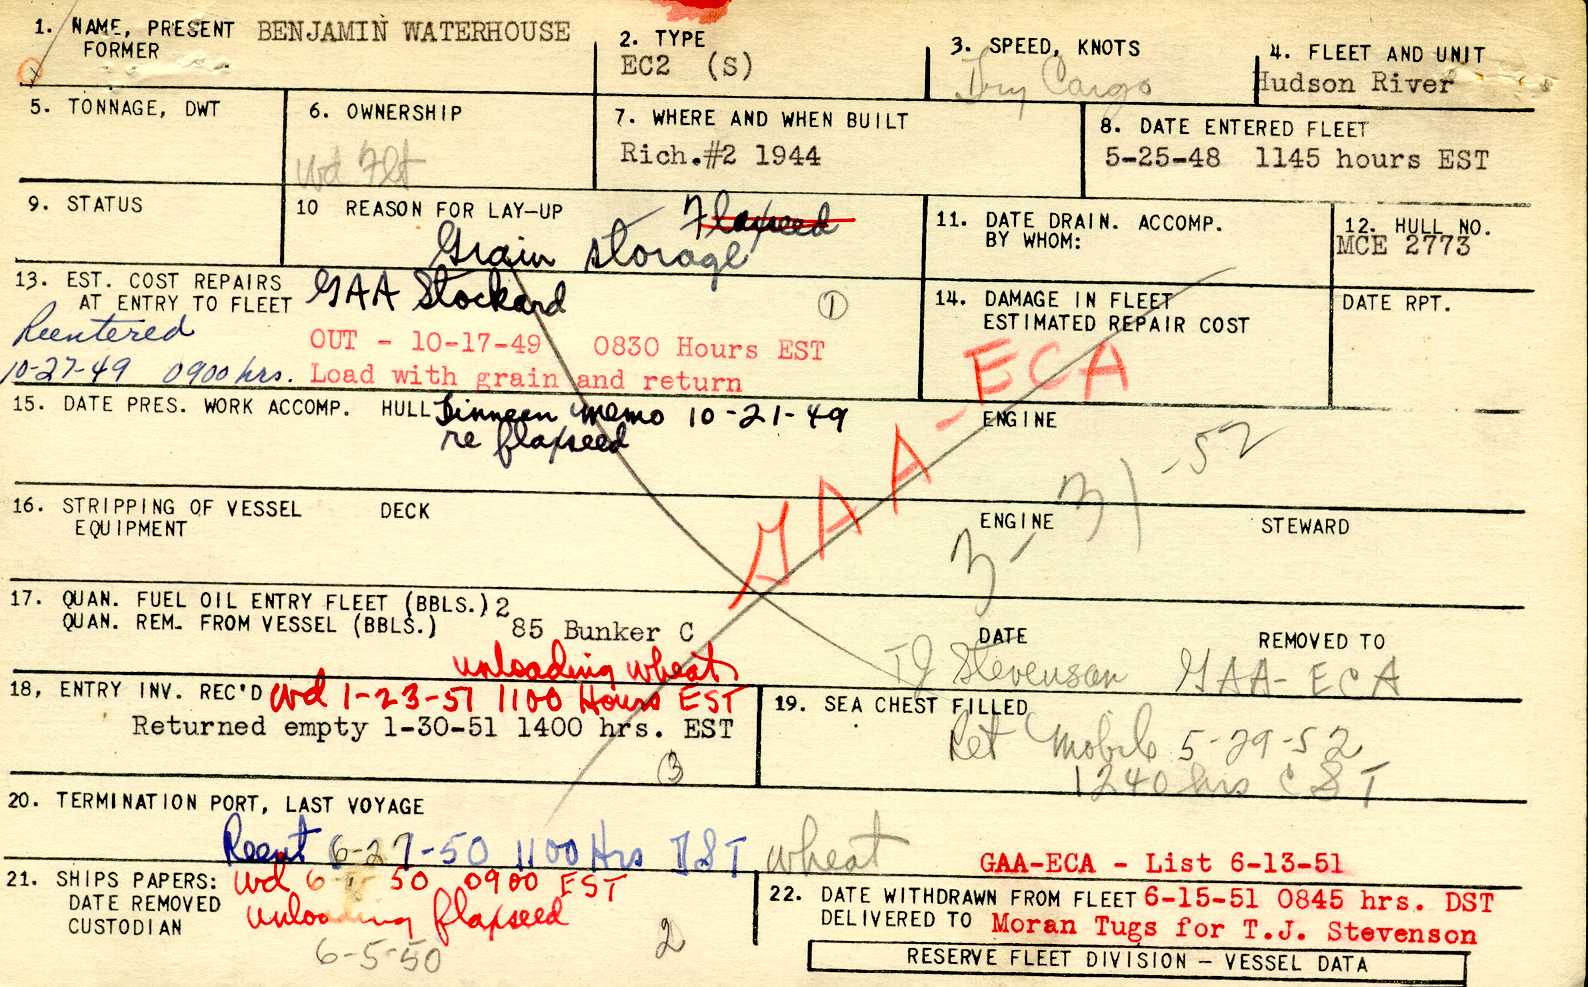 1. NAME, PRESENT BENJAMIN WATERHOUSE
FORMER
2. TYPE
EC2 (S)
3. SPEED, KNOTS
Dry Cargo
4. FLEET AND UNIT
Hudson River
5. TONNAGE, DWT
6. OWNERSHIP
Wd Flt
7. WHERE AND WHEN BUILT
Rich.#2 1944
8. DATE ENTERED FLEET
5-25-48 1145 hours EST
9. STATUS
10 REASON FOR LAY-UP
Flaxseed
Grain storage
11. DATE DRAIN. ACCOMP.
BY WHOM:
12. HULL NO.
MCE 2773
13. EST. COST REPAIRS
AT ENTRY TO FLEET
GAA Stockard
1
Reentered
10-27-49 0900 hrs.
OUT - 10-17-49 0830 Hours EST
Load with grain and return
14. DAMAGE IN FLEET
ESTIMATED REPAIR COST
DATE RPT.
GAA-ECA
15. DATE PRES. WORK ACCOMP. HULL memo 10-21-49
re flaxseed
ENGINE
3-31-52
16. STRIPPING OF VESSEL
EQUIPMENT
DECK
ENGINE
STEWARD
17. QUAN. FUEL OIL ENTRY FLEET (BBLS.) 2
QUAN. REM. FROM VESSEL (BBLS.) 85 Bunker C
DATE
REMOVED TO
TJ Stevenson GAA-ECA
unloading wheat
18, ENTRY INV. REC'D Wd 1-23-51 1100 Hours EST
Returned empty 1-30-51 1400 hrs. EST
3
19. SEA CHEST FILLED
Ret Mobile 5-29-52
1240 hrs CST
20. TERMINATION PORT, LAST VOYAGE
Reent 6-27-50 1100 Hrs DST wheat
GAA-ECA - List 6-13-51
21. SHIPS PAPERS:
DATE REMOVED
CUSTODIAN
Wd 50 0900 EST
unloading flaxseed
6-5-50
2
22. DATE WITHDRAWN FROM FLEET 6-15-51 0845 hrs. DST
DELIVERED TO Moran Tugs for T.J. Stevenson
RESERVE FLEET DIVISION - VESSEL DATA